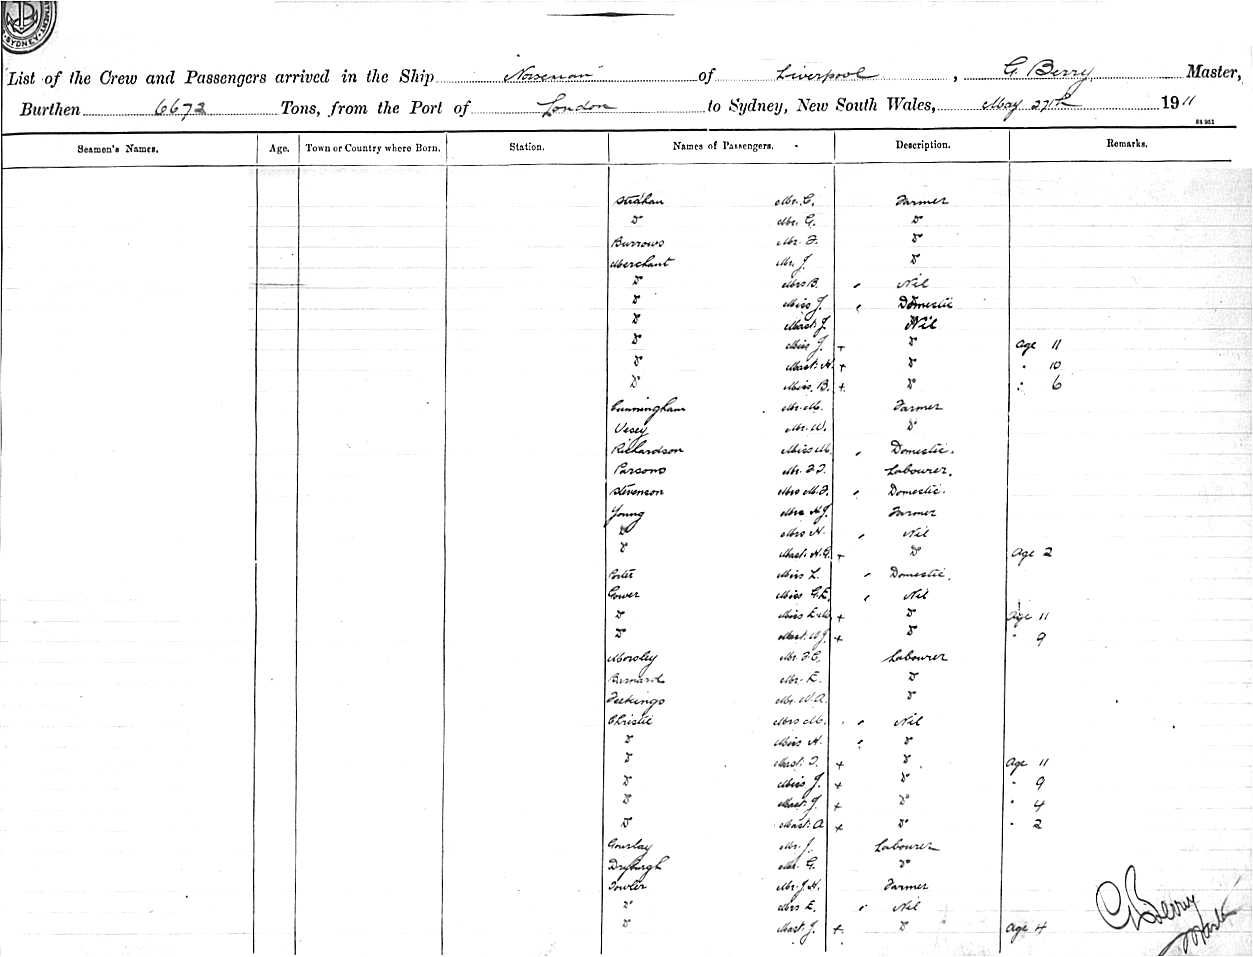 SYDNEY
List of the Crew and Passengers arrived in the Ship "Norseman" of Liverpool, G. Berry Master,
Burthen 6672 Tons, from the Port of London to Sydney, New South Wales, May 27th 1911
Seamen's Names. Age. Town or Country where Born. Station. Names of Passengers. Description. Remarks.
Strahan Mr. C. Farmer
Do Mr. G. Do
Burrows Mr. F. Do
Merchant Mr. J. Do
Do Mrs B. Nil
Do Miss J. Domestic
Do Mast. J. Nil
Do Miss J. + Do Age 11
Do Mast. H. + Do " 10
Do Miss. B. + Do " 6
Cunningham Mr. M. Farmer
Vesey Mr. W. Do
Richardson Miss M. Domestic.
Parsons Mr. F.F. Labourer.
Stevenson Mrs M.F. Domestic.
Young Mr H.J. Farmer
Do Mrs H. Nil
Do Mast. H.G. + Do Age 2
Porter Miss L. Domestic.
Gower Miss G.E. Nil
Do Miss + Do Age 11
Do Mast. W.J. + Do " 9
Morsley Mr. F.C. Labourer
Burnard Mr. E. Do
Mr. W.A. Do
Christie Mrs M. Nil
Do Miss H. Do
Do Mast. F. + Do Age 11
Do Miss J. + Do " 9
Do Mast. J. + Do " 4
Do Mast. A + Do " 2
Gourlay Mr. J. Labourer
Dryburgh Mr. G. Do
Fowler Mr. J.H. Farmer
Do Mrs E. Nil
Do Mast. J. + Do Age 4
G Berry
Master